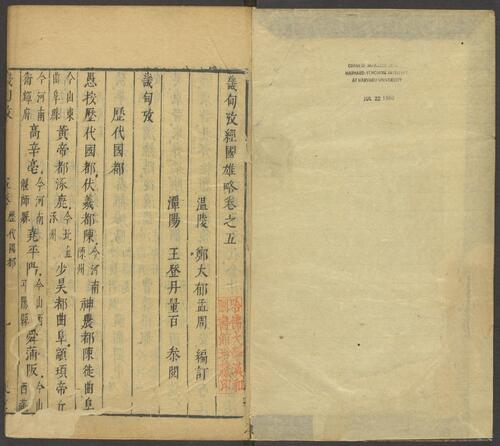 CHINESE-JAPANESE LIBRARY
HARVARD-YENCHING INSTITUTE
AT HARVARD UNIVERSITY
JUL 22 1960
畿甸攷經國雄略卷之五
溫陵 鄭大郁孟周 編訂
潭陽 王登丹量百 叅閱
哈佛大學漢和圖書館珍藏印
畿甸攷
歷代國都
愚按歷代國都伏羲都陳今河南陳州神農都陳徙曲阜
今山東曲阜縣黃帝都涿鹿今北直涿州少昊都曲阜顓頊帝丘
今河南高辛亳今河南偃師縣堯平陽今山西舜蒲阪今山西
畿甸攷 歷代國都